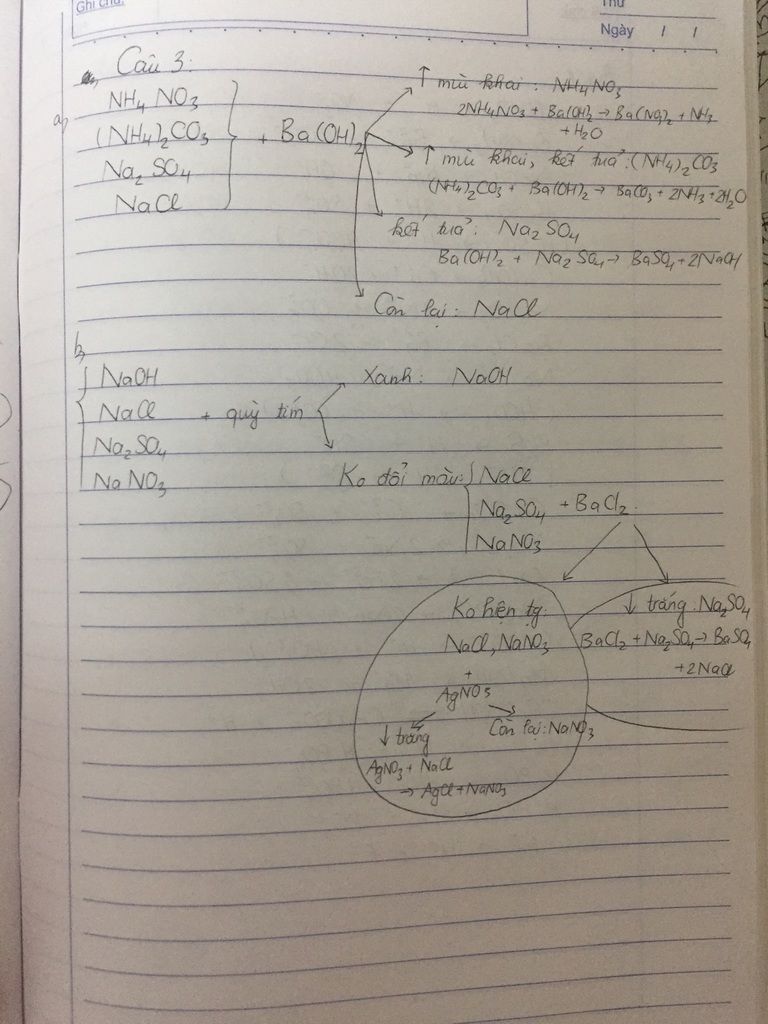 Ghi chú:
Thứ
Ngày / /
Câu 3:
a,
NH4NO3
(NH4)2CO3
Na2SO4
NaCl
+ Ba(OH)2
↑ mùi khai : NH4NO3
2NH4NO3 + Ba(OH)2 → Ba(NO3)2 + NH3
+ H2O
↑ mùi khai, kết tủa : (NH4)2CO3
(NH4)2CO3 + Ba(OH)2 → BaCO3 + 2NH3 + 2H2O
kết tủa : Na2SO4
Ba(OH)2 + Na2SO4 → BaSO4 + 2NaOH
Còn lại : NaCl
b,
NaOH
NaCl
Na2SO4
NaNO3
+ quỳ tím
Xanh : NaOH
Ko đổi màu :
NaCl
Na2SO4
NaNO3
+ BaCl2
Ko hiện tg :
NaCl, NaNO3
+
AgNO3
↓ trắng
AgNO3 + NaCl
→ AgCl + NaNO3
Còn lại : NaNO3
↓ trắng : Na2SO4
BaCl2 + Na2SO4 → BaSO4
+ 2NaCl